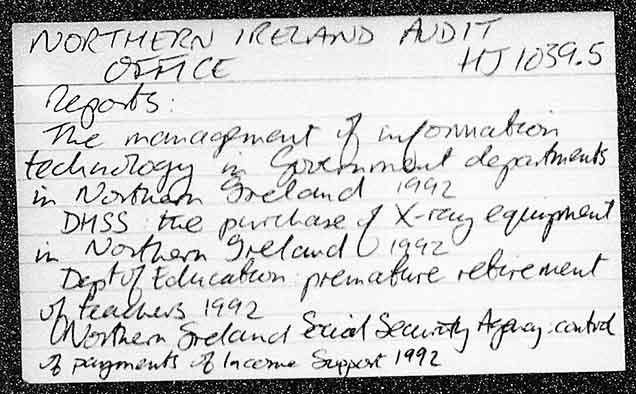 NORTHERN IRELAND AUDIT
OFFICE HJ 1039.5
Reports:
The management of information
technology in Government departments
in Northern Ireland 1992
DHSS: the purchase of X-ray equipment
in Northern Ireland 1992
Dept of Education: premature retirement
of teachers 1992
Northern Ireland Social Security Agency: control
of payments of Income Support 1992